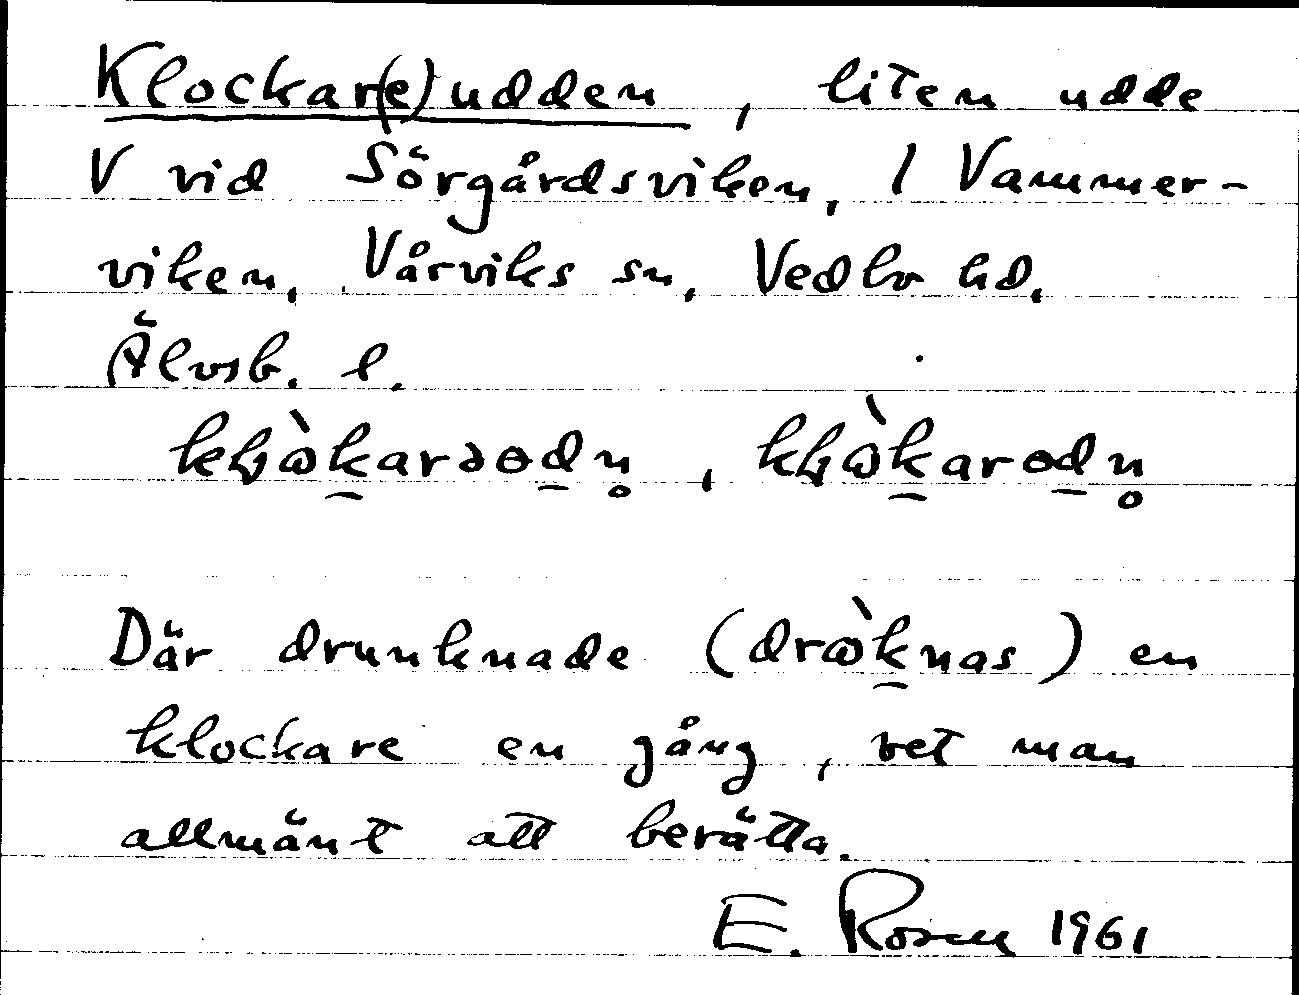 Klockar(e)udden, liten udde
V vid Sörgårdsviken, I Vammer-
viken, Vårviks sn, Vedbo hd,
Älvsb. l.
Där drunknade (drὼknas) en
klockare en gång, vet man
allmänt att berätta.
E. Rosen 1961